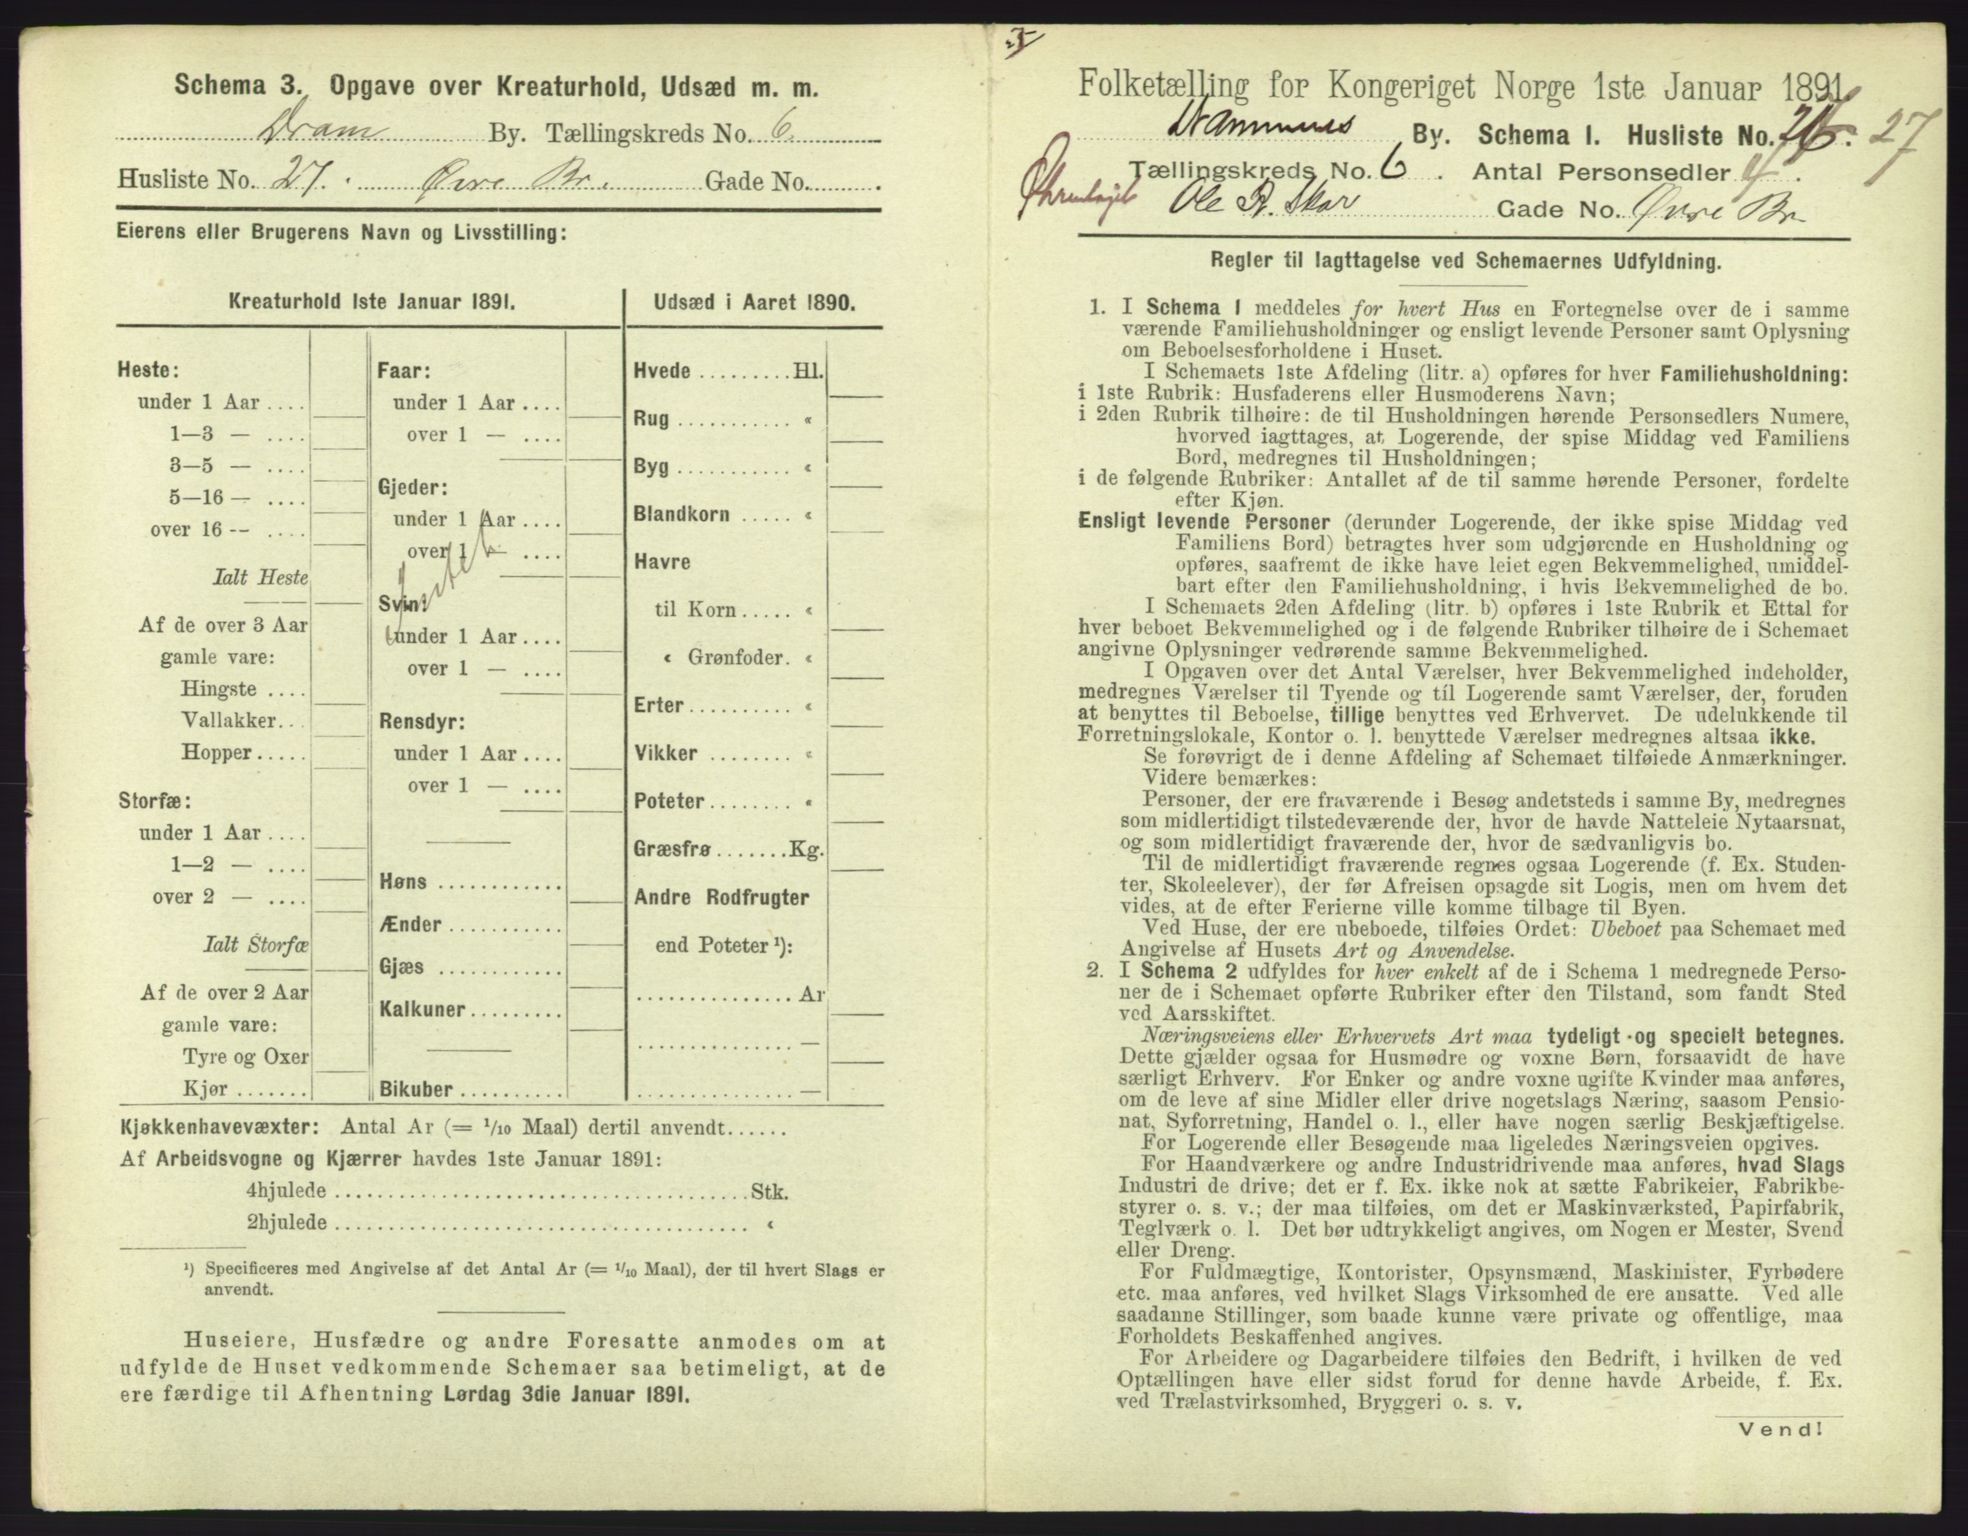 Schema 3. Opgave over Kreaturhold, Udsæd m. m.
Dram By. Tællingskreds No. 6.
Husliste No. 27. Øvre Br. Gade No.
Eierens eller Brugerens Navn og Livsstilling:
Kreaturhold 1ste Januar 1891.
Heste:
under 1 Aar....
1—3 — ....
3—5 — ....
5—16 — ....
over 16 -- ....
Ialt Heste
Af de over 3 Aar
gamle vare:
Hingste ....
Vallakker...
Hopper.....
Storfæ:
under 1 Aar....
1—2 — ....
over 2 — ....
Ialt Storfæ
Af de over 2 Aar
gamle vare:
Tyre og Oxer
Kjør.......
Faar:
under 1 Aar....
over 1 — ....
Gjeder:
under 1 Aar....
over 1 — ....
Intet
Svin:
under 1 Aar....
over 1 — ....
Rensdyr:
under 1 Aar....
over 1 — ....
Høns ............
Ænder...........
Gjæs ............
Kalkuner.........
Bikuber..........
Udsæd i Aaret 1890.
Hvede .........Hl.
Rug ........... «
Byg ........... «
Blandkorn ..... «
Havre
til Korn..... «
« Grønfoder. «
Erter.......... «
Vikker ........ «
Poteter........ «
Græsfrø.......Kg.
Andre Rodfrugter
end Poteter ¹):
...............Ar
............... —
............... —
Kjøkkenhavevæxter: Antal Ar (= 1/10 Maal) dertil anvendt......
Af Arbeidsvogne og Kjærrer havdes 1ste Januar 1891:
4hjulede ......................................Stk.
2hjulede ...................................... «
¹) Specificeres med Angivelse af det Antal Ar (= 1/10 Maal), der til hvert Slags er
anvendt.
Huseiere, Husfædre og andre Foresatte anmodes om at
udfylde de Huset vedkommende Schemaer saa betimeligt, at de
ere færdige til Afhentning Lørdag 3die Januar 1891.
Folketælling for Kongeriget Norge 1ste Januar 1891.
Drammens By. Schema 1. Husliste No. 27
Tællingskreds No. 6. Antal Personsedler 4.
Ole R. Skar Gade No. Øvre Br
Regler til Iagttagelse ved Schemaernes Udfyldning.
1. I Schema 1 meddeles for hvert Hus en Fortegnelse over de i samme
værende Familiehusholdninger og ensligt levende Personer samt Oplysning
om Beboelsesforholdene i Huset.
I Schemaets 1ste Afdeling (litr. a) opføres for hver Familiehusholdning:
i 1ste Rubrik: Husfaderens eller Husmoderens Navn;
i 2den Rubrik tilhøire: de til Husholdningen hørende Personsedlers Numere,
hvorved iagttages, at Logerende, der spise Middag ved Familiens
Bord, medregnes til Husholdningen;
i de følgende Rubriker: Antallet af de til samme hørende Personer, fordelte
efter Kjøn.
Ensligt levende Personer (derunder Logerende, der ikke spise Middag ved
Familiens Bord) betragtes hver som udgjørende en Husholdning og
opføres, saafremt de ikke have leiet egen Bekvemmelighed, umiddel-
bart efter den Familiehusholdning, i hvis Bekvemmelighed de bo.
I Schemaets 2den Afdeling (litr. b) opføres i 1ste Rubrik et Ettal for
hver beboet Bekvemmelighed og i de følgende Rubriker tilhøire de i Schemaet
angivne Oplysninger vedrørende samme Bekvemmelighed.
I Opgaven over det Antal Værelser, hver Bekvemmelighed indeholder,
medregnes Værelser til Tyende og til Logerende samt Værelser, der, foruden
at benyttes til Beboelse, tillige benyttes ved Erhvervet. De udelukkende til
Forretningslokale, Kontor o. l. benyttede Værelser medregnes altsaa ikke.
Se forøvrigt de i denne Afdeling af Schemaet tilføiede Anmærkninger.
Videre bemærkes:
Personer, der ere fraværende i Besøg andetsteds i samme By, medregnes
som midlertidigt tilstedeværende der, hvor de havde Natteleie Nytaarsnat,
og som midlertidigt fraværende der, hvor de sædvanligvis bo.
Til de midlertidigt fraværende regnes ogsaa Logerende (f. Ex. Studen-
ter, Skoleelever), der før Afreisen opsagde sit Logis, men om hvem det
vides, at de efter Ferierne ville komme tilbage til Byen.
Ved Huse, der ere ubeboede, tilføies Ordet: Ubeboet paa Schemaet med
Angivelse af Husets Art og Anvendelse.
2. I Schema 2 udfyldes for hver enkelt af de i Schema 1 medregnede Perso-
ner de i Schemaet opførte Rubriker efter den Tilstand, som fandt Sted
ved Aarsskiftet.
Næringsveiens eller Erhvervets Art maa tydeligt og specielt betegnes.
Dette gjælder ogsaa for Husmødre og voxne Børn, forsaavidt de have
særligt Erhverv. For Enker og andre voxne ugifte Kvinder maa anføres,
om de leve af sine Midler eller drive nogetslags Næring, saasom Pensio-
nat, Syforretning, Handel o. l., eller have nogen særlig Beskjæftigelse.
For Logerende eller Besøgende maa ligeledes Næringsveien opgives.
For Haandværkere og andre Industridrivende maa anføres, hvad Slags
Industri de drive; det er f. Ex. ikke nok at sætte Fabrikeier, Fabrikbe-
styrer o. s. v.; der maa tilføies, om det er Maskinværksted, Papirfabrik,
Teglværk o. l. Det bør udtrykkeligt angives, om Nogen er Mester, Svend
eller Dreng.
For Fuldmægtige, Kontorister, Opsynsmænd, Maskinister, Fyrbødere
etc. maa anføres, ved hvilket Slags Virksomhed de ere ansatte. Ved alle
saadanne Stillinger, som baade kunne være private og offentlige, maa
Forholdets Beskaffenhed angives.
For Arbeidere og Dagarbeidere tilføies den Bedrift, i hvilken de ved
Optællingen have eller sidst forud for denne havde Arbeide, f. Ex.
ved Trælastvirksomhed, Bryggeri o. s. v.
Vend!